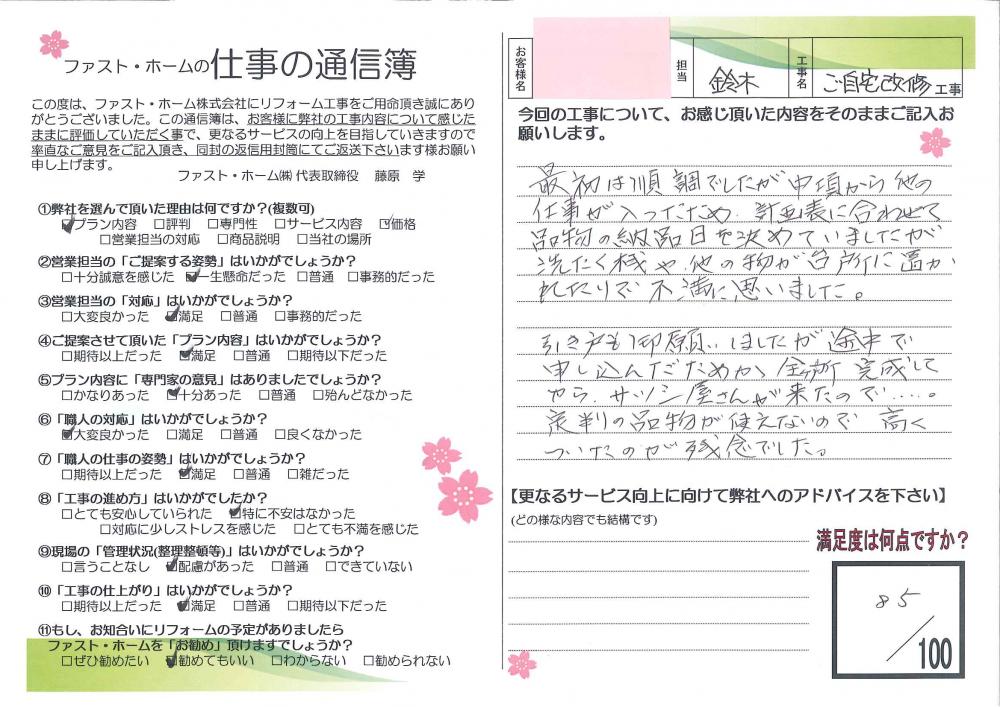 ファスト・ホームの仕事の通信簿
この度は、ファスト・ホーム株式会社にリフォーム工事をご用命頂き誠にあり
がとうございました。この通信簿は、お客様に弊社の工事内容について感じた
ままに評価していただく事で、更なるサービスの向上を目指していきますので
率直なご意見をご記入頂き、同封の返信用封筒にてご返送下さいます様お願い
申し上げます。
ファスト・ホーム㈱ 代表取締役 藤原 学
①弊社を選んで頂いた理由は何ですか?(複数可)
☑プラン内容 □評判 □専門性 □サービス内容 ☑価格
□営業担当の対応 □商品説明 □当社の場所
②営業担当の「ご提案する姿勢」はいかがでしょうか?
□十分誠意を感じた ☑一生懸命だった □普通 □事務的だった
③営業担当の「対応」はいかがでしょうか?
□大変良かった ☑満足 □普通 □事務的だった
④ご提案させて頂いた「プラン内容」はいかがでしょうか?
□期待以上だった ☑満足 □普通 □期待以下だった
⑤プラン内容に「専門家の意見」はありましたでしょうか?
□かなりあった ☑十分あった □普通 □殆んどなかった
⑥「職人の対応」はいかがでしょうか?
☑大変良かった □満足 □普通 □良くなかった
⑦「職人の仕事の姿勢」はいかがでしょうか?
□期待以上だった ☑満足 □普通 □雑だった
⑧「工事の進め方」はいかがでしたか?
□とても安心していられた ☑特に不安はなかった
□対応に少しストレスを感じた □とても不満を感じた
⑨現場の「管理状況(整理整頓等)」はいかがでしょうか?
□言うことなし ☑配慮があった □普通 □できていない
⑩「工事の仕上がり」はいかがでしょうか?
□期待以上だった ☑満足 □普通 □期待以下だった
⑪もし、お知合いにリフォームの予定がありましたら
ファスト・ホームを「お勧め」頂けますでしょうか?
□ぜひ勧めたい ☑勧めてもいい □わからない □勧められない
お客様名
担当 鈴木
工事名 ご自宅改修工事
今回の工事について、お感じ頂いた内容をそのままご記入お
願いします。
最初は順調でしたが中頃から他の
仕事が入ったため、計画表に合わせて
品物の納品日を決めていましたが
洗たく機や他の物が台所に置か
れたりで不満に思いました。
引き戸も御願いしましたが途中で
申し込んだためか、全ヶ所完成して
から、サッシ屋さんが来たので……。
定判の品物が使えないので 高く
ついたのが残念でした。
【更なるサービス向上に向けて弊社へのアドバイスを下さい】
(どの様な内容でも結構です)
満足度は何点ですか?
85/100